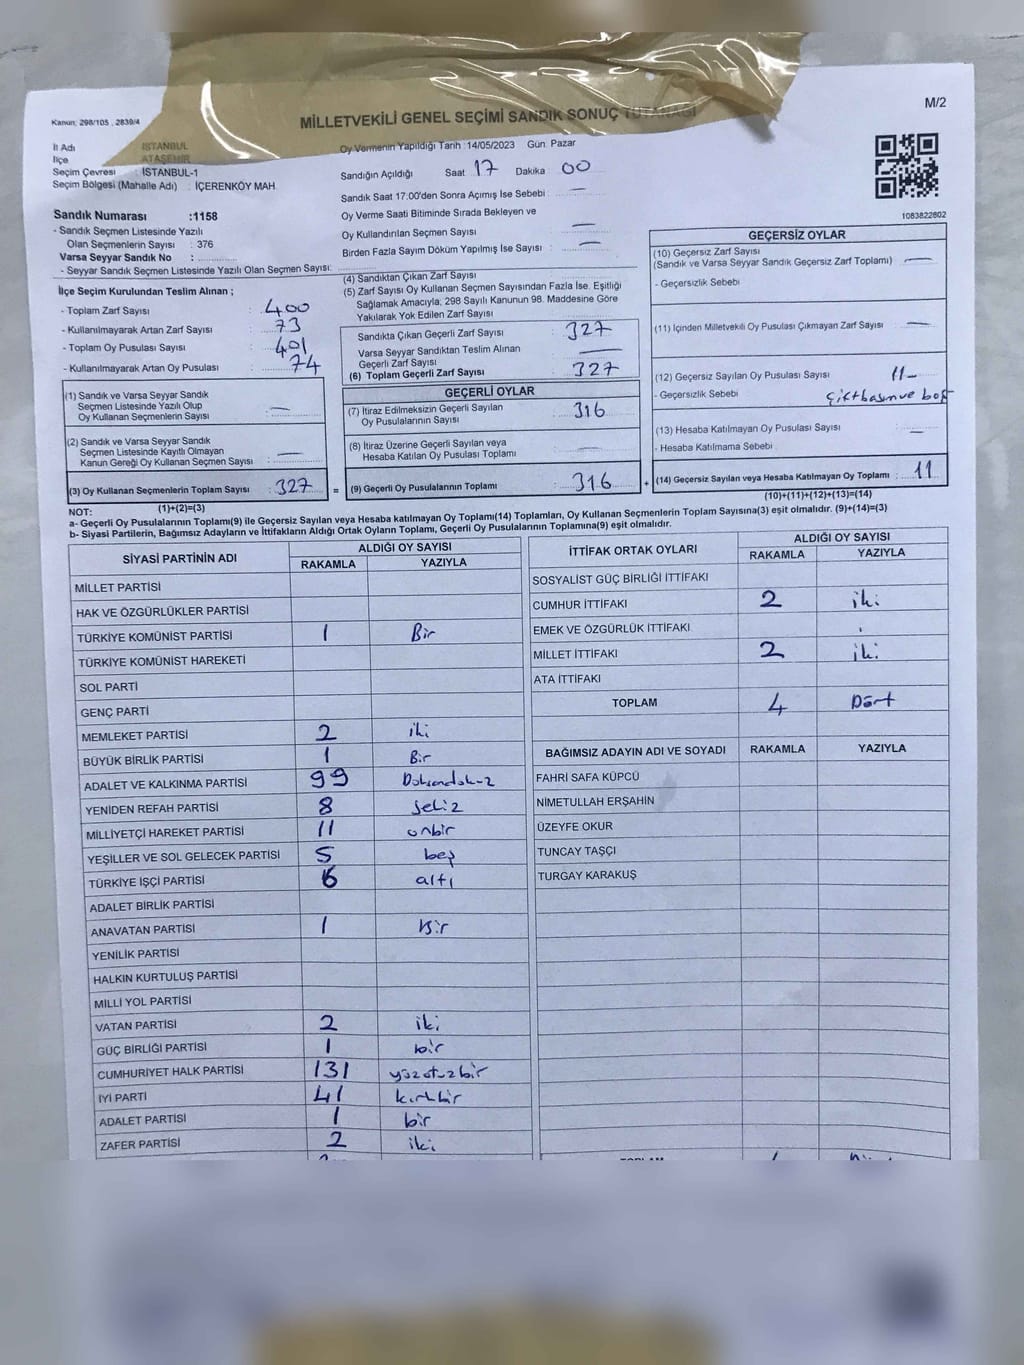 M/2
Kanun; 298/105 , 2839/4
MİLLETVEKİLİ GENEL SEÇİMİ SANDIK SONUÇ TUTANAĞI
İl Adı : İSTANBUL
İlçe : ATAŞEHİR
Seçim Çevresi : İSTANBUL-1
Seçim Bölgesi (Mahalle Adı) : İÇERENKÖY MAH.
Sandık Numarası :1158
- Sandık Seçmen Listesinde Yazılı
Olan Seçmenlerin Sayısı : 376
Varsa Seyyar Sandık No :
- Seyyar Sandık Seçmen Listesinde Yazılı Olan Seçmen Sayısı:
Oy Vermenin Yapıldığı Tarih : 14/05/2023 Gün: Pazar
Sandığın Açıldığı Saat 17 Dakika 00
Sandık Saat 17:00'den Sonra Açımış İse Sebebi : —
Oy Verme Saati Bitiminde Sırada Bekleyen ve
Oy Kullandırılan Seçmen Sayısı : —
Birden Fazla Sayım Döküm Yapılmış İse Sayısı : —
1083822802
İlçe Seçim Kurulundan Teslim Alınan ;
- Toplam Zarf Sayısı : 400
- Kullanılmayarak Artan Zarf Sayısı : 73
- Toplam Oy Pusulası Sayısı : 401
- Kullanılmayarak Artan Oy Pusulası : 74
(1) Sandık ve Varsa Seyyar Sandık
Seçmen Listesinde Yazılı Olup
Oy Kullanan Seçmenlerin Sayısı : —
(2) Sandık ve Varsa Seyyar Sandık
Seçmen Listesinde Kayıtlı Olmayan
Kanun Gereği Oy Kullanan Seçmen Sayısı : —
(3) Oy Kullanan Seçmenlerin Toplam Sayısı : 327
(1)+(2)=(3)
(4) Sandıktan Çıkan Zarf Sayısı :
(5) Zarf Sayısı Oy Kullanan Seçmen Sayısından Fazla İse. Eşitliği
Sağlamak Amacıyla; 298 Sayılı Kanunun 98. Maddesine Göre
Yakılarak Yok Edilen Zarf Sayısı :
Sandıkta Çıkan Geçerli Zarf Sayısı : 327
Varsa Seyyar Sandıktan Teslim Alınan
Geçerli Zarf Sayısı : —
(6) Toplam Geçerli Zarf Sayısı : 327
GEÇERLİ OYLAR
(7) İtiraz Edilmeksizin Geçerli Sayılan
Oy Pusulalarının Sayısı : 316
(8) İtiraz Üzerine Geçerli Sayılan veya
Hesaba Katılan Oy Pusulası Toplamı : —
= (9) Geçerli Oy Pusulalarının Toplamı : 316 +
GEÇERSİZ OYLAR
(10) Geçersiz Zarf Sayısı
(Sandık ve Varsa Seyyar Sandık Geçersiz Zarf Toplamı) : —
- Geçersizlik Sebebi :
(11) İçinden Milletvekili Oy Pusulası Çıkmayan Zarf Sayısı : —
(12) Geçersiz Sayılan Oy Pusulası Sayısı : 11-
- Geçersizlik Sebebi : Çiftbasım ve boş
(13) Hesaba Katılmayan Oy Pusulası Sayısı : —
- Hesaba Katılmama Sebebi :
(14) Geçersiz Sayılan veya Hesaba Katılmayan Oy Toplamı : 11
(10)+(11)+(12)+(13)=(14)
NOT:
a- Geçerli Oy Pusulalarının Toplamı(9) ile Geçersiz Sayılan veya Hesaba katılmayan Oy Toplamı(14) Toplamları, Oy Kullanan Seçmenlerin Toplam Sayısına(3) eşit olmalıdır. (9)+(14)=(3)
b- Siyasi Partilerin, Bağımsız Adayların ve İttifakların Aldığı Ortak Oyların Toplamı, Geçerli Oy Pusulalarının Toplamına(9) eşit olmalıdır.
SİYASİ PARTİNİN ADI ALDIĞI OY SAYISI
RAKAMLA YAZIYLA
MİLLET PARTİSİ
HAK VE ÖZGÜRLÜKLER PARTİSİ
TÜRKİYE KOMÜNİST PARTİSİ 1 Bir
TÜRKİYE KOMÜNİST HAREKETİ
SOL PARTİ
GENÇ PARTİ
MEMLEKET PARTİSİ 2 iki
BÜYÜK BİRLİK PARTİSİ 1 Bir
ADALET VE KALKINMA PARTİSİ 99 Doksandokuz
YENİDEN REFAH PARTİSİ 8 sekiz
MİLLİYETÇİ HAREKET PARTİSİ 11 onbir
YEŞİLLER VE SOL GELECEK PARTİSİ 5 beş
TÜRKİYE İŞÇİ PARTİSİ 6 altı
ADALET BİRLİK PARTİSİ
ANAVATAN PARTİSİ 1 Bir
YENİLİK PARTİSİ
HALKIN KURTULUŞ PARTİSİ
MİLLİ YOL PARTİSİ
VATAN PARTİSİ 2 iki
GÜÇ BİRLİĞİ PARTİSİ 1 bir
CUMHURİYET HALK PARTİSİ 131 yüzotuzbir
İYİ PARTİ 41 kırkbir
ADALET PARTİSİ 1 bir
ZAFER PARTİSİ 2 iki
İTTİFAK ORTAK OYLARI ALDIĞI OY SAYISI
RAKAMLA YAZIYLA
SOSYALİST GÜÇ BİRLİĞİ İTTİFAKI
CUMHUR İTTİFAKI 2 iki
EMEK VE ÖZGÜRLÜK İTTİFAKI
MİLLET İTTİFAKI 2 iki
ATA İTTİFAKI
TOPLAM 4 Dört
BAĞIMSIZ ADAYIN ADI VE SOYADI RAKAMLA YAZIYLA
FAHRİ SAFA KÜPCÜ
NİMETULLAH ERŞAHİN
ÜZEYFE OKUR
TUNCAY TAŞÇI
TURGAY KARAKUŞ